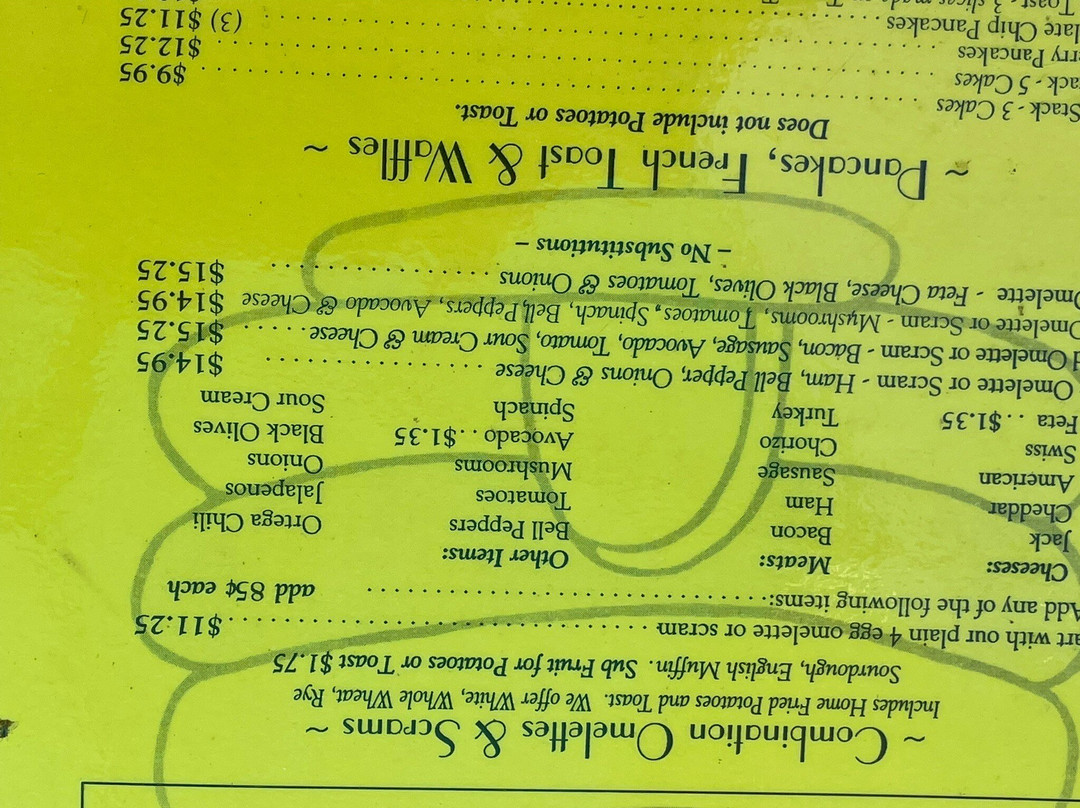 ~ Combination Omelettes & Scrams ~
Includes Home Fried Potatoes and Toast. We offer White, Whole Wheat, Rye
Sourdough, English Muffin. Sub Fruit for Potatoes or Toast $1.75
art with our plain 4 egg omelette or scram. . . . . . . . . . . . . . . . . . . . . . . . . . . . . . $11.25
Add any of the following items:. . . . . . . . . . . . . . . . . . . . . . . . . . . . add 85¢ each
Cheeses: Meats: Other Items:
Jack Bacon Bell Peppers Ortega Chili
Cheddar Ham Tomatoes Jalapenos
American Sausage Mushrooms Onions
Swiss Chorizo Avocado . . $1.35 Black Olives
Feta . . $1.35 Turkey Spinach Sour Cream
Omelette or Scram - Ham, Bell Pepper, Onions & Cheese . . . . . . . . . . . . . $14.95
d Omelette or Scram - Bacon, Sausage, Avocado, Tomato, Sour Cream & Cheese . . . . . . $15.25
Omelette or Scram - Mushrooms, Tomatoes, Spinach, Bell Peppers, Avocado & Cheese $14.95
Omelette - Feta Cheese, Black Olives, Tomatoes & Onions . . . . . . . . . . . . . $15.25
– No Substitutions –
~ Pancakes, French Toast & Waffles ~
Does not include Potatoes or Toast.
Stack - 3 Cakes . . . . . . . . . . . . . . . . . . . . . . . . . . . . . . . . . . . $9.95
ack - 5 Cakes . . . . . . . . . . . . . . . . . . . . . . . . . . . . . . . . . . . $12.25
rry Pancakes . . . . . . . . . . . . . . . . . . . . . . . . . . . . . . . . (3) $11.25
late Chip Pancakes
Toast - 3 slices made